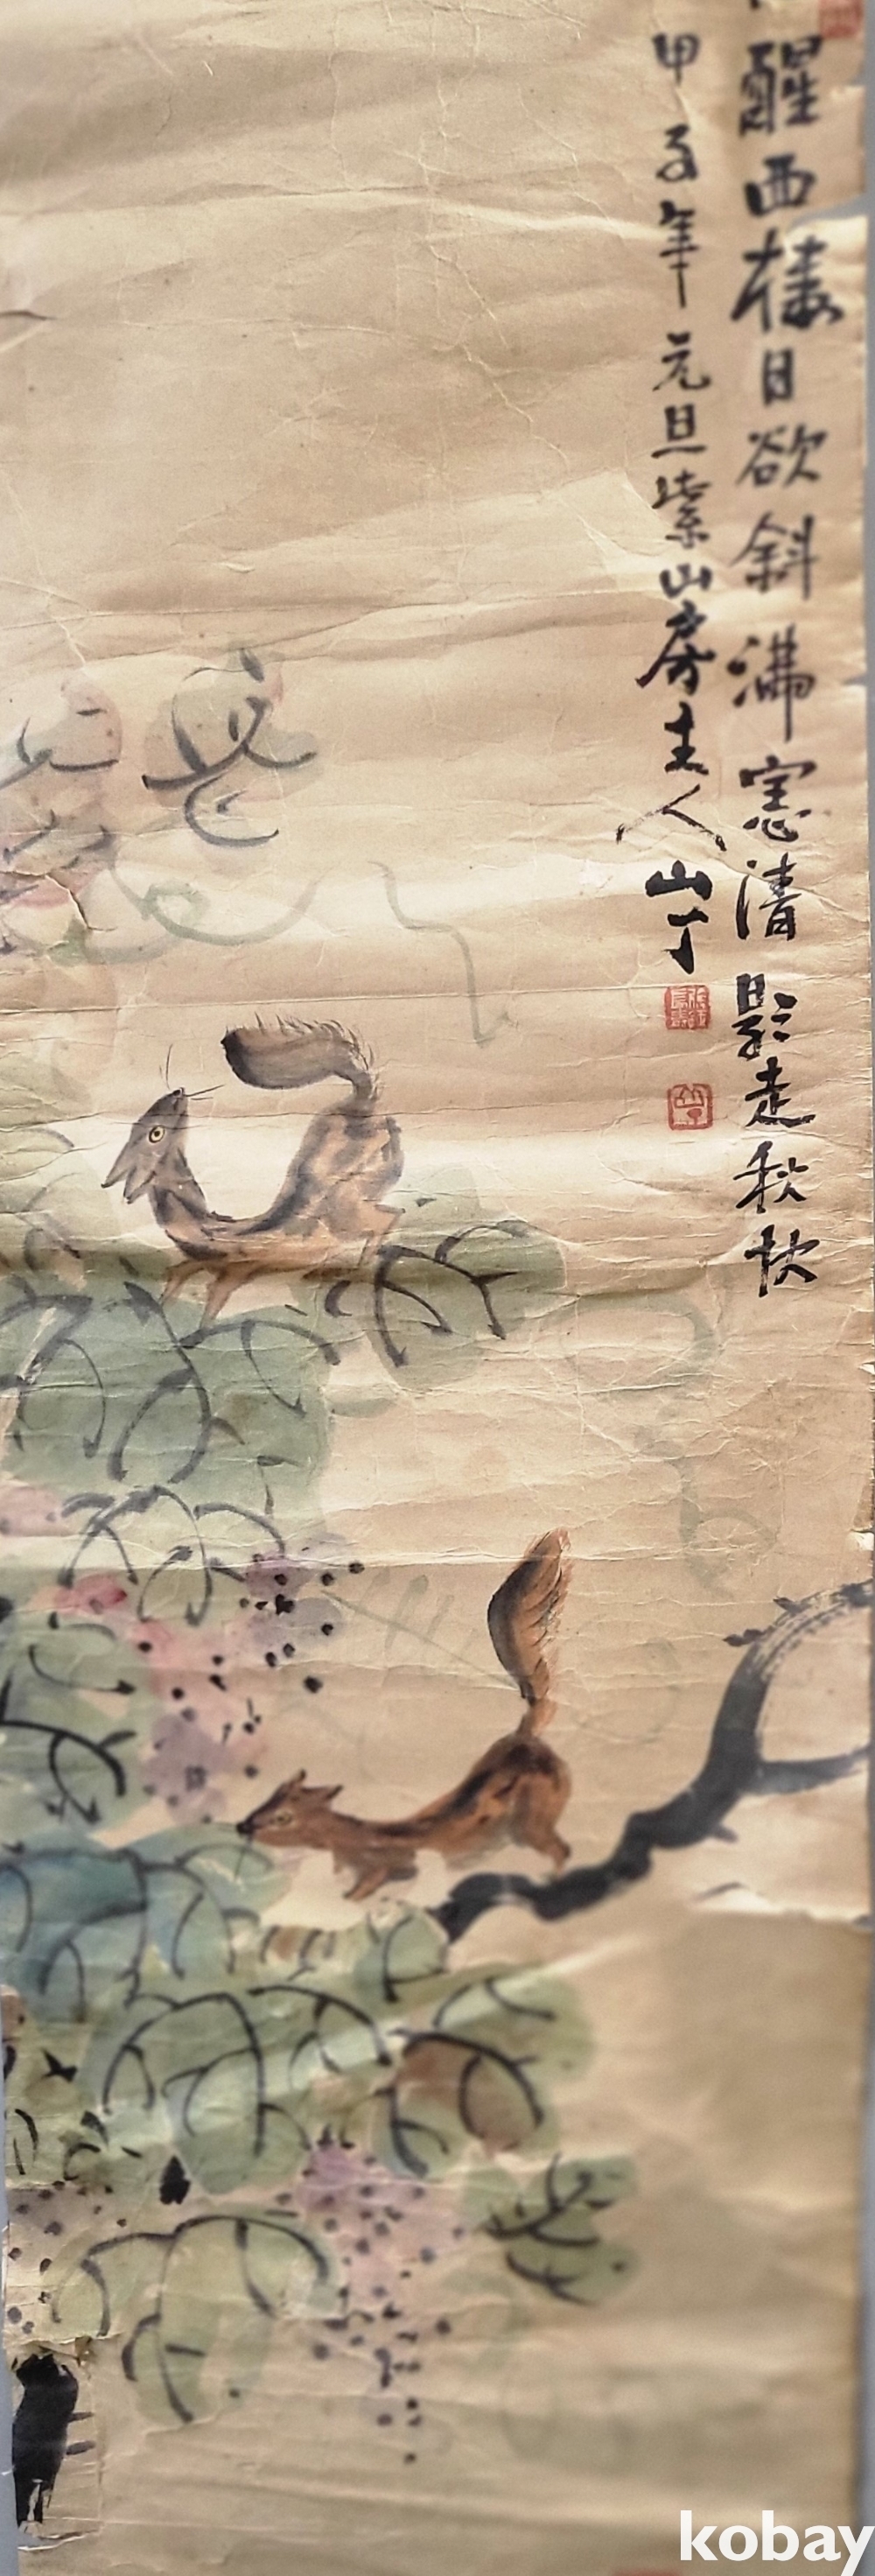 醒西楼日欲斜満窓清影走秋
甲子年元旦紫山房主人山丁
kobay